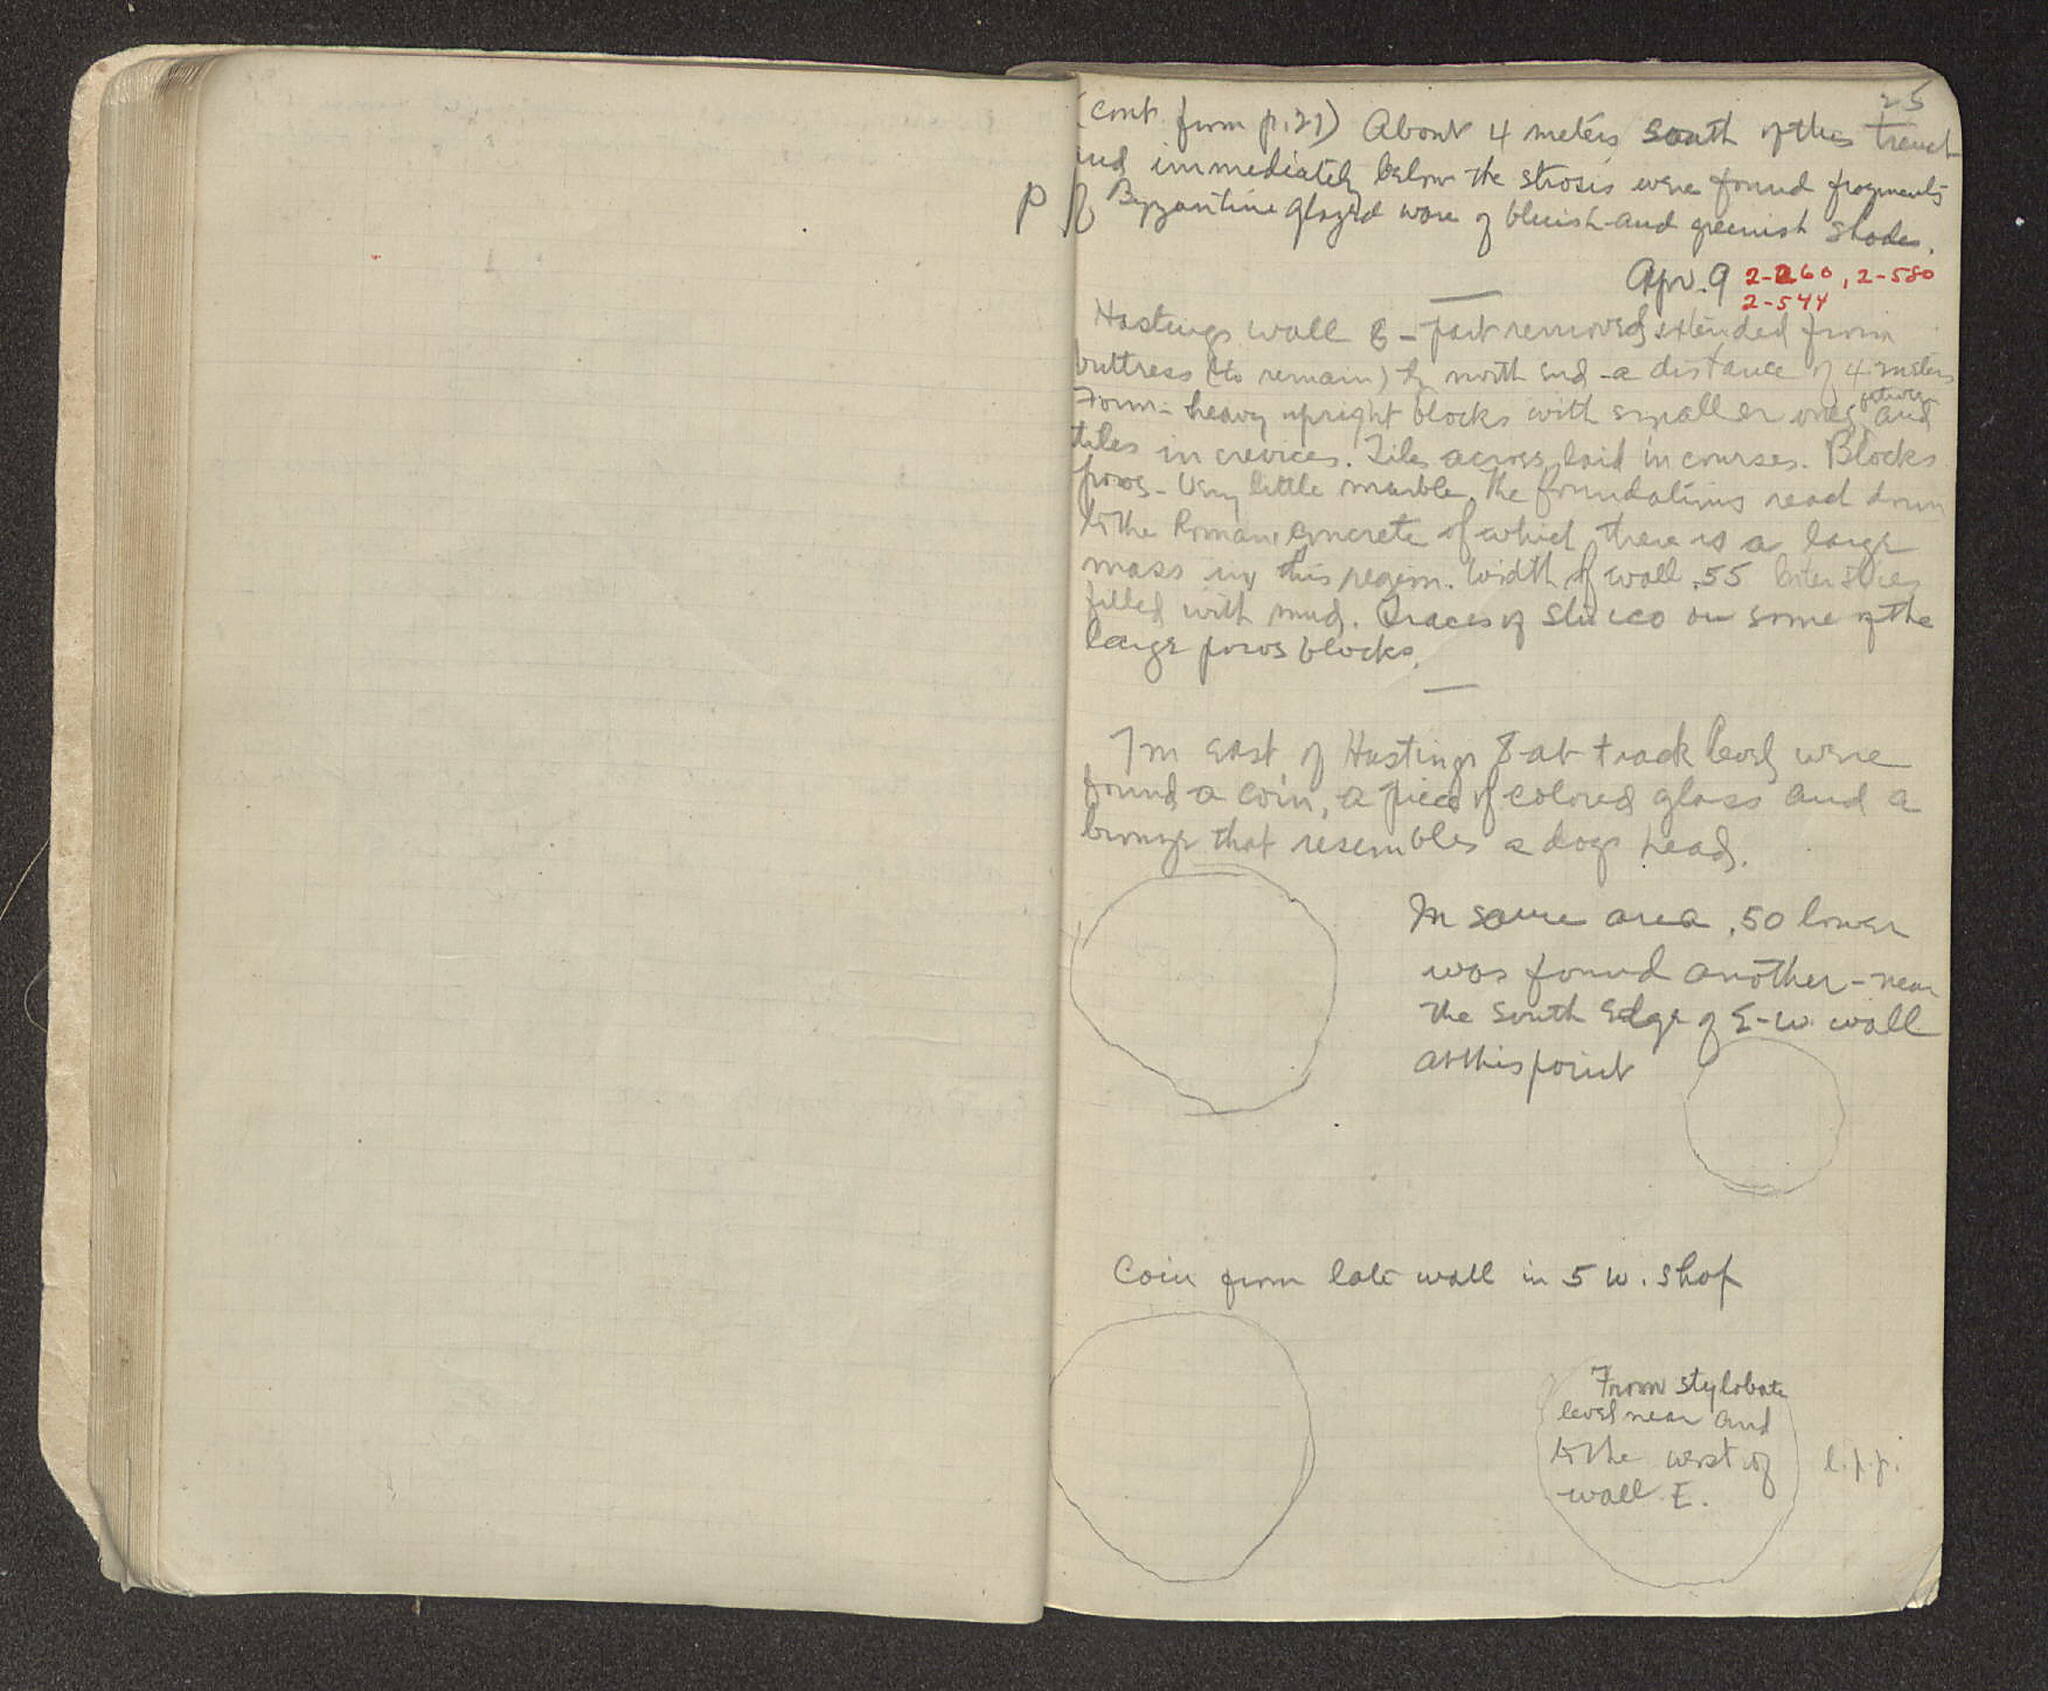 25
(cont. from p. 21) About 4 meters south of this trench
and immediately below the strosis were found fragments
P of Byzantine glazed ware of bluish and greenish shades.
Apr. 9 2-260, 2-580
2-544
Hastings wall 8 - part removed extended from
buttress (to remain) to north end - a distance of 4 meters
Form - heavy upright blocks with smaller ones between and
tiles in crevices. Tiles across laid in courses. Blocks
poros - Very little marble. The foundations read down
to the Roman concrete of which there is a large
mass in this region. Width of wall .55 Interstices
filled with mud. Traces of stucco on some of the
large poros blocks.
7m east of Hastings 8 at track level were
found a coin, a piece of colored glass and a
bronze that resembles a dogs head.
In same area .50 lower
was found another - near
the south edge of E-W wall
at this point
Coin from late wall in 5 W. Shop
From stylobate
level near and
to the west of
wall E.
l.p.p.